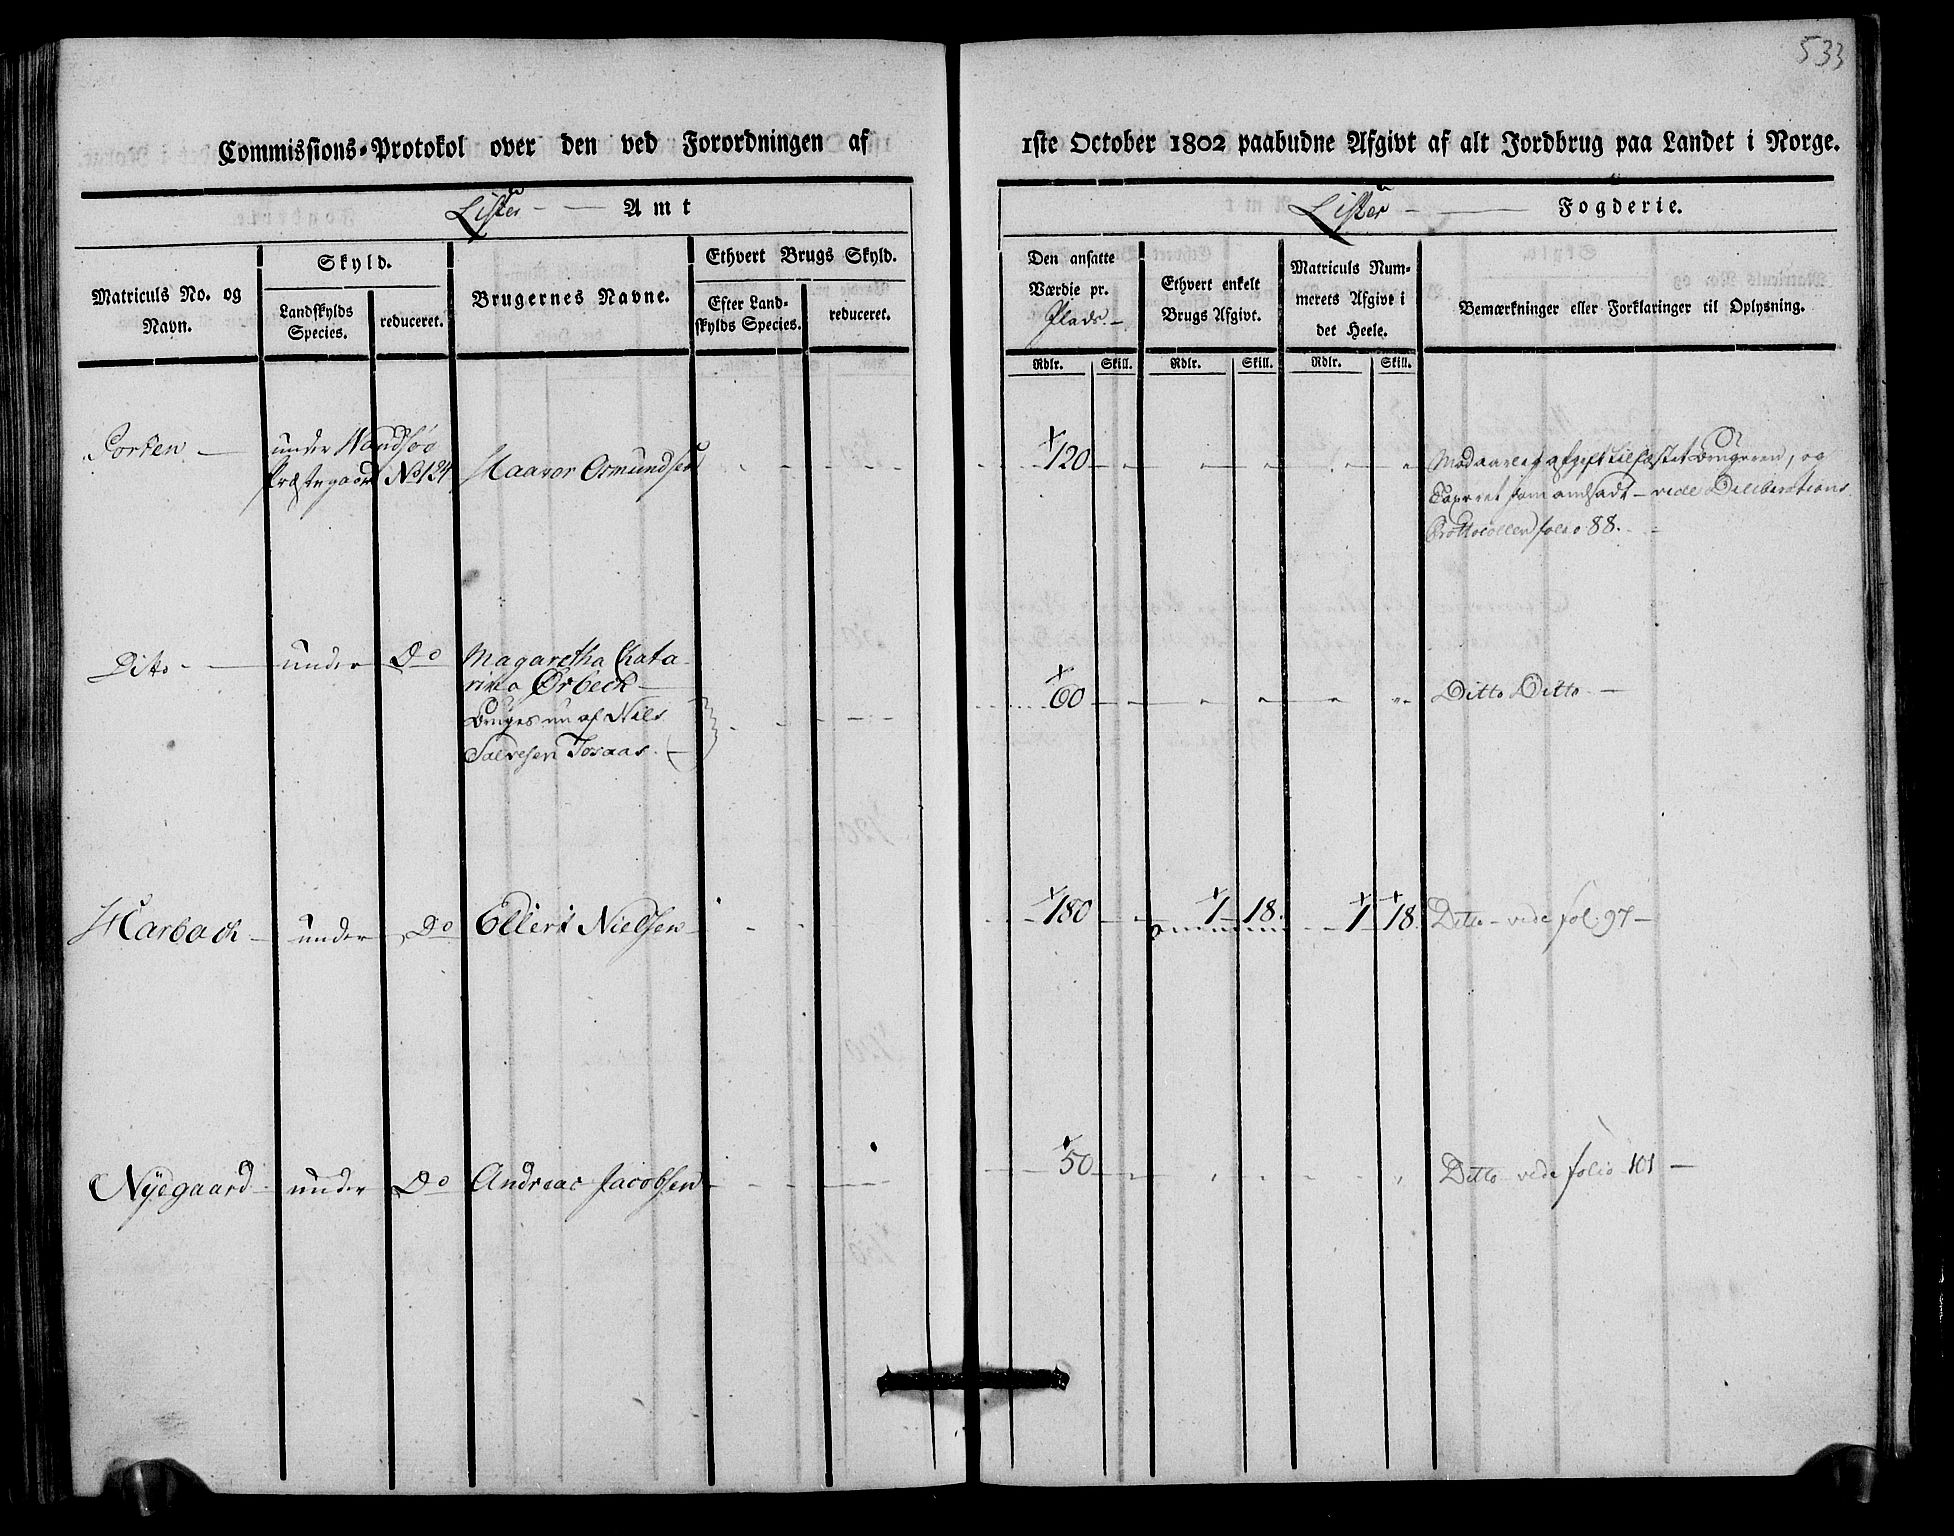 533
Commissions-Protokol over den ved Forordningen af 1ste October 1802 paabudne Afgivt af alt Jordbrug paa Landet i Norge.
Lister Amt
Lister Fogderie.
Matriculs No. og Navn.
Skyld.
Landskylds Species.
reduceret.
Brugernes Navne.
Ethvert Brugs Skyld.
Efter Landskylds Species.
reduceret.
Den ansatte Værdie pr. Plads.
Ethvert enkelt Brugs Afgivt.
Matriculs Nummerets Afgivt i det Heele.
Bemærkninger eller Forklaringer til Oplysning.
Rdlr. Skill. Rdlr. Skill. Rdlr. Skill.
under
Præstegaard No 124 Haavor Osmundsen 120
Med aarlig afgift tilfæstet Brugeren, og
Taxeret som andsadt - vide Deliberations
Prottocollen folio 88.
Ditto under Do Magaretha Chata-
rina Ørbeck 60 Ditto Ditto
Bruges nu af Nels
Salvesen Tosaas.
Harback under Do Ellert Nielsen 180 1 18. 1 18. Ditto - vide fol: 97 -
Nyegaard under Do Andreas Jacobsen 50 Ditto vide folio 101 -